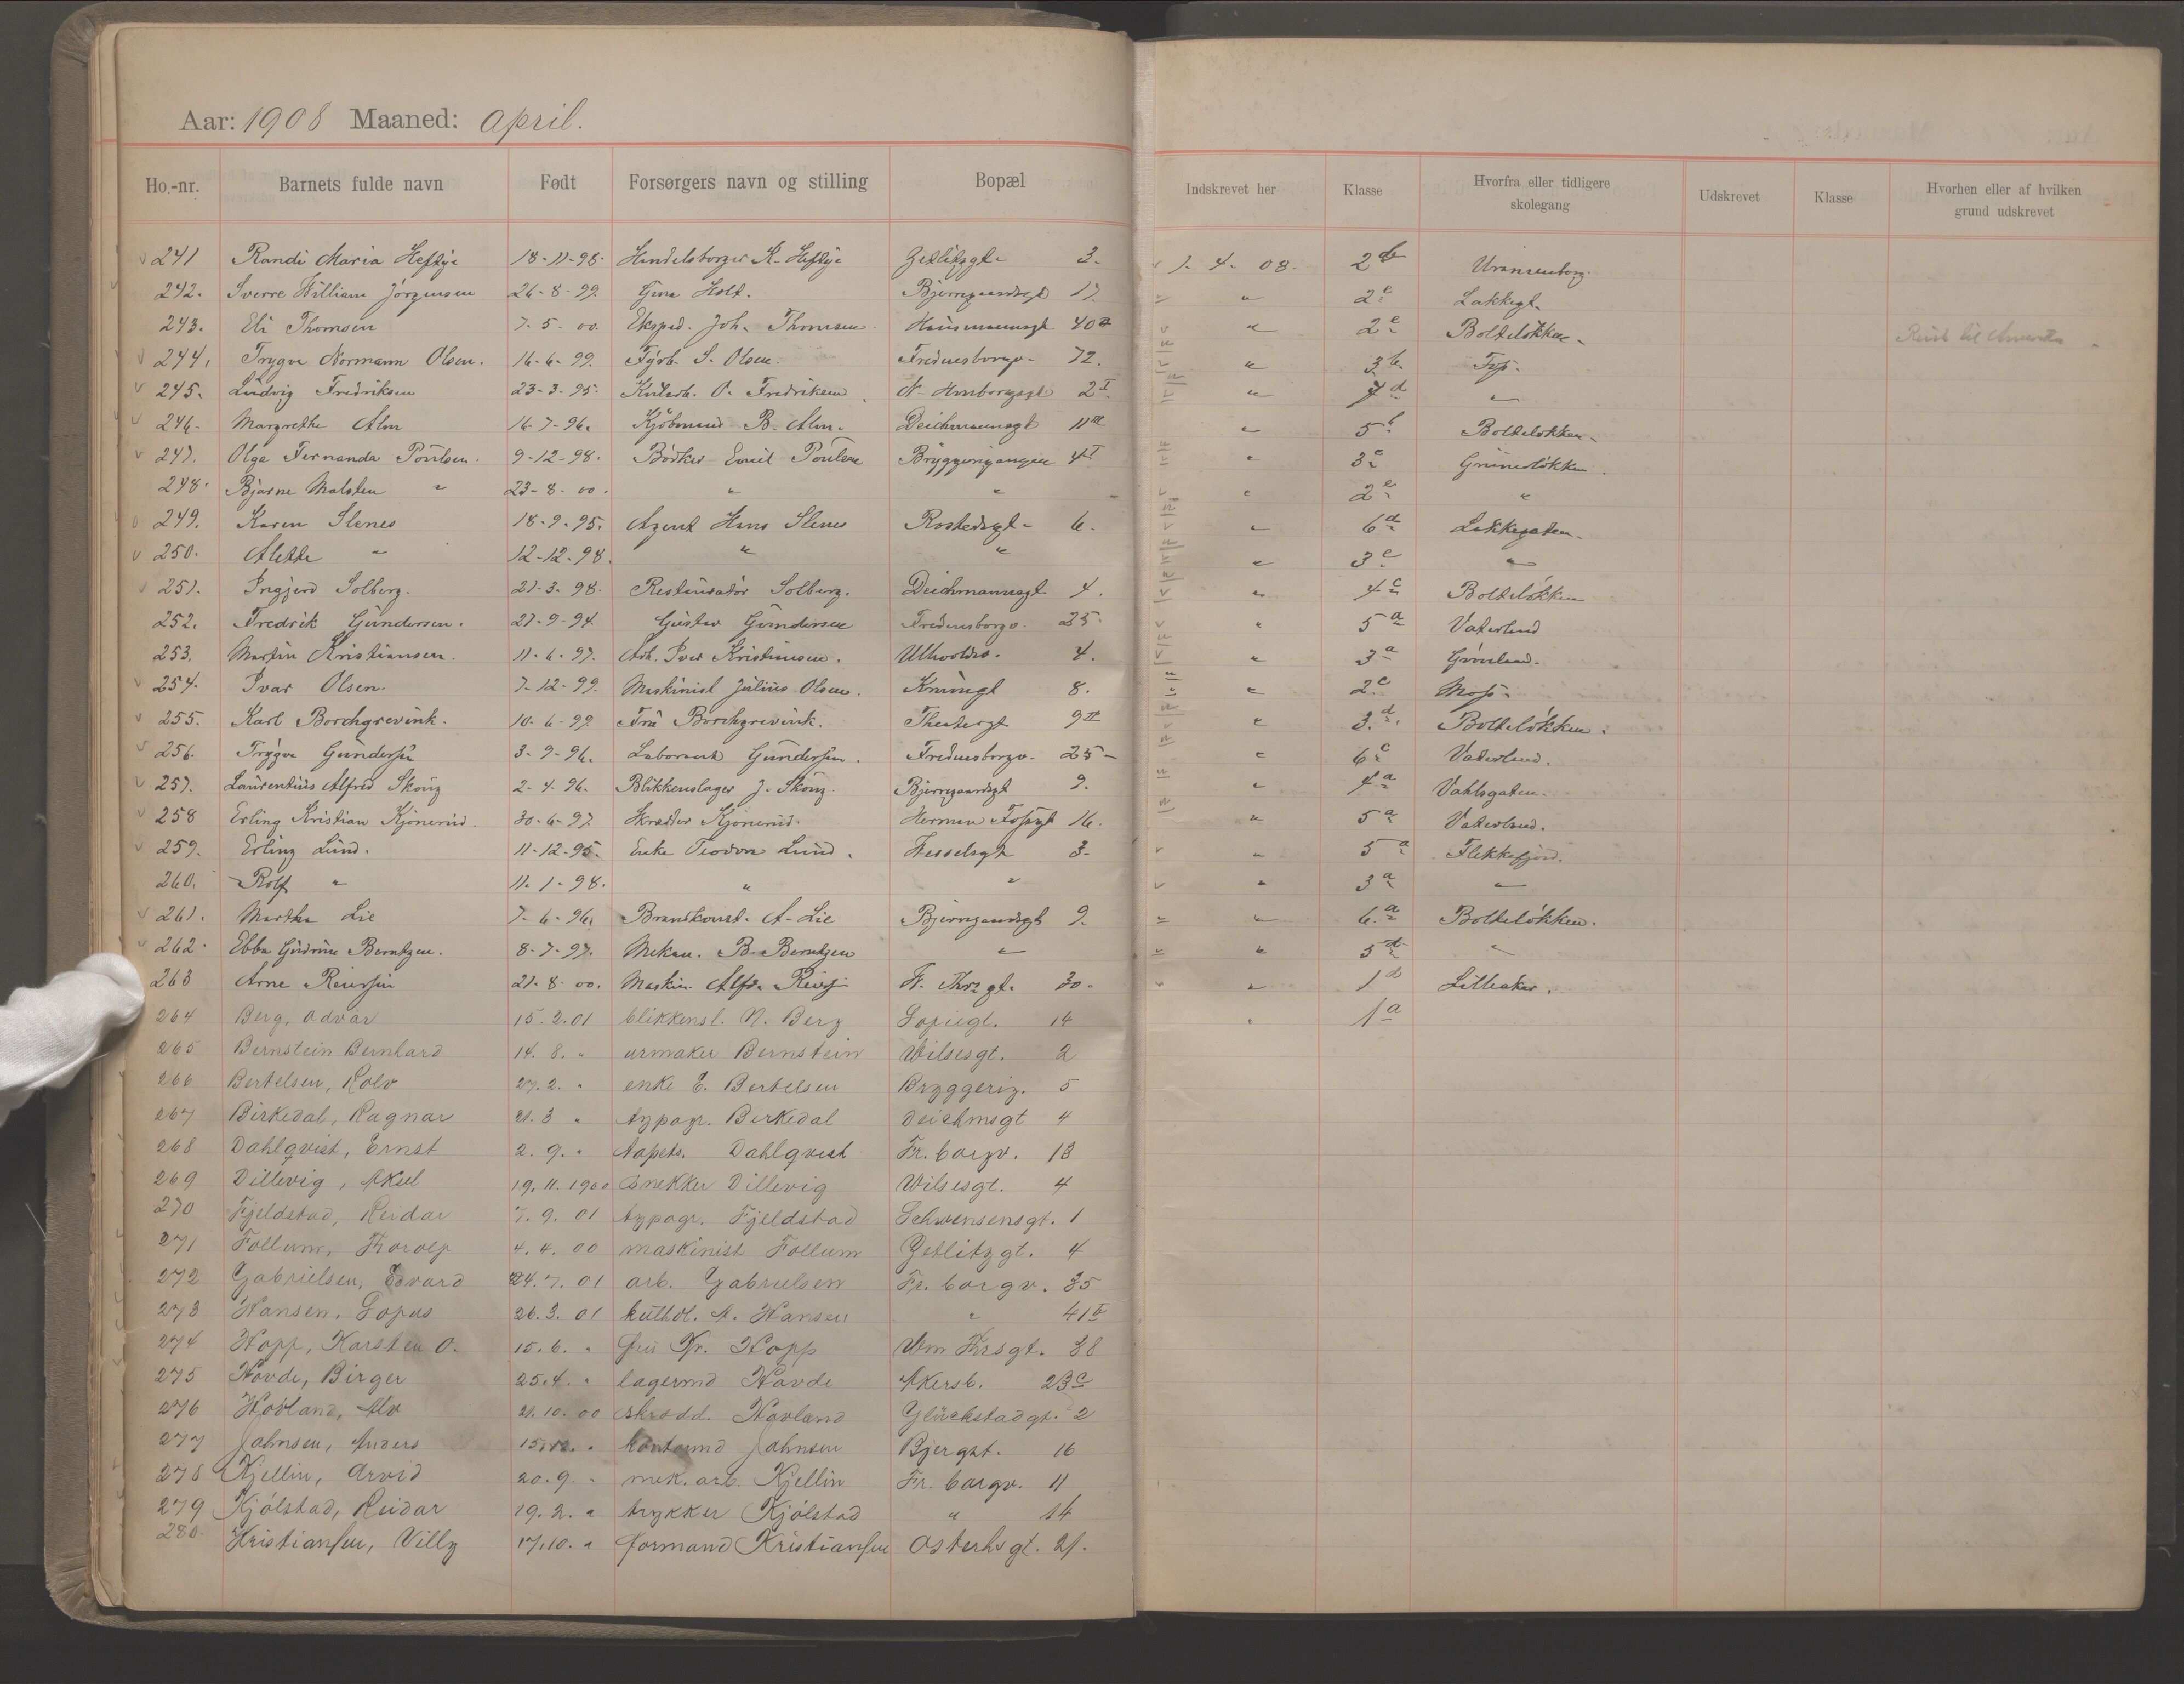 Aar: 1908 Maaned: april.
Ho.-nr. Barnets fulde navn Født Forsørgers navn og stilling Bopæl Indskrevet her Klasse Hvorfra eller tidligere skolegang Udskrevet Klasse Hvorhen eller af hvilken grund udskrevet
241 Randi Maria Heftye 18-11-98. Handelsborger K. Heftye Zetlitzgt. 3. 1-4-08. 2 b Uranienborg.
242. Sverre William Jörgensen 26-8-99. Gina Holt. Bjerregaardsgt 17 " 2 e Lakkegt.
243. Eli Thomsen 7-5-00. Eksped. Joh. Thomsen Hausmannsgt 40 " 2 e Bolteløkken. Reist til Amerika
244. Trygve Normann Olsen. 16-6-99. Fyrb. S. Olsen. Fredensborgv. 72. " 3 b
245. Ludvig Fredriksen 23-3-95. O. Fredriksen 2 I " 7 d "
246. Margrethe Alm 16-7-96. Kjöbmand B. Alm. Deichmannsgt 11 " 5 Bolteløkken.
247. Olga Fernanda Poulsen. 9-12-98. Bödker Emil Poulsen Bryggerigangen 4 I " 3 e Grünerløkken.
248. Bjarne " 23-8-00. " " " 2 e "
249. Karen Slenes 18-9-95. Agent Hans Slenes Rostedsgt. 6. " 6 d Lakkegaten.
250. Alette " 12-12-98. " " " 3 e "
251. Ingjerd Solberg. 21-3-98. Restauratör Solberg. Deichmannsgt 4. " 4 c Bolteløkken
252. Fredrik Gundersen. 27-9-94 Gustav Gundersen Fredensborgv. 25. " 5 a Vaterland
253. Martin Kristiansen. 11-6-97. Arb. Iver Kristiansen. Ullevoldsv. 4. " 3 a Grønland.
254. Ivar Olsen. 7-12-99. Maskinist Julius Olsen. 8. " 2 c Moss.
255. Karl Borchgrevink. 10-6-99 Fru Borchgrevink. Theatergt 9 II " 3 d. Bolteløkken.
256. Trygve Gundersen 3-9-96. Laborant Gundersen. Fredensborgv. 25 " 6 c Vaterland.
257. Laurentius Alfred Skoug 2-4-96. Blikkenslager J. Skoug. Bjerregaardsgt 9. " 4 a Vahlsgaten.
258 Erling Kristian Kjönerud. 30-6-97 Skrædder Kjönerud. Herman Fossgt 16. " 5 a Vaterland.
259. Erling Lund. 11-12-95. Enke Teodora Lund. Wesselsgt 3. " 5 a Flekkefjord.
260. Rolf " 11-1-98. " " " 3 a "
261. Martha Lie 7-6-96. Brandkonst. A. Lie Bjerregaardsgt 9. " 6. a Bolteløkken.
262. Ebba Gudrun Berntzen. 8-7-97. Mekan. B. Berntzen " " 5 d "
263 Arne Reiersen 21-8-00. Maskin. Alfr. 30. " 1 d Lilleaker.
264 Berg, Odvar 15.2.01 blikkensl. N. Berg Sofiegt. 14 " 1 a
265 Bernstein Bernhard 14.8. " urmaker Bernstein Wilsesgt. 2
266 Bertelsen, Rolv 27.2. " enke E. Bertelsen Bryggerig. 5
267 Birkedal, Ragnar 21.3 " typogr. Birkedal Deichmsgt 4
268 Dahlqvist, Ernst 2.9. " tapets. Dahlqvist Fr.borgv. 13
269 Dillevig, Aksel 19.11.1900 snekker Dillevig Wilsesgt. 4
270 Fjeldstad, Reidar 7.9.01 typogr. Fjeldstad Schwensensgt. 1
271 Follum, Torolf 4.4.00 maskinist Follum Zetlitzgt. 4
272 Gabrielsen, Edvard 24.7.01 arb. Gabrielsen Fr.borgv. 35
273 Hansen, Gopus 26.3.01 kulhdl. A. Hansen " 41
274 Hopp, Karsten O. 15.6. " fru Kr. Hopp Wm Thrsgt. 38
275 Hovde, Birger 25.4. " lagermd Hovde Akersb. 23 c
276 Hovland, Alv 21.10.00 skrædd. Hovland Glückstadgt. 2
277 Jahnsen, Anders 15.12. " Jahnsen Bjergst. 16
278 Kjellin, Arvid 20.9. " mek. arb. Kjellin Fr.borgv. 11
279 Kjölstad, Reidar 19.2. " trykker Kjölstad " 14
280 Kristiansen, Villy 17.10. " formand Kristiansen Osterhsgt. 21.